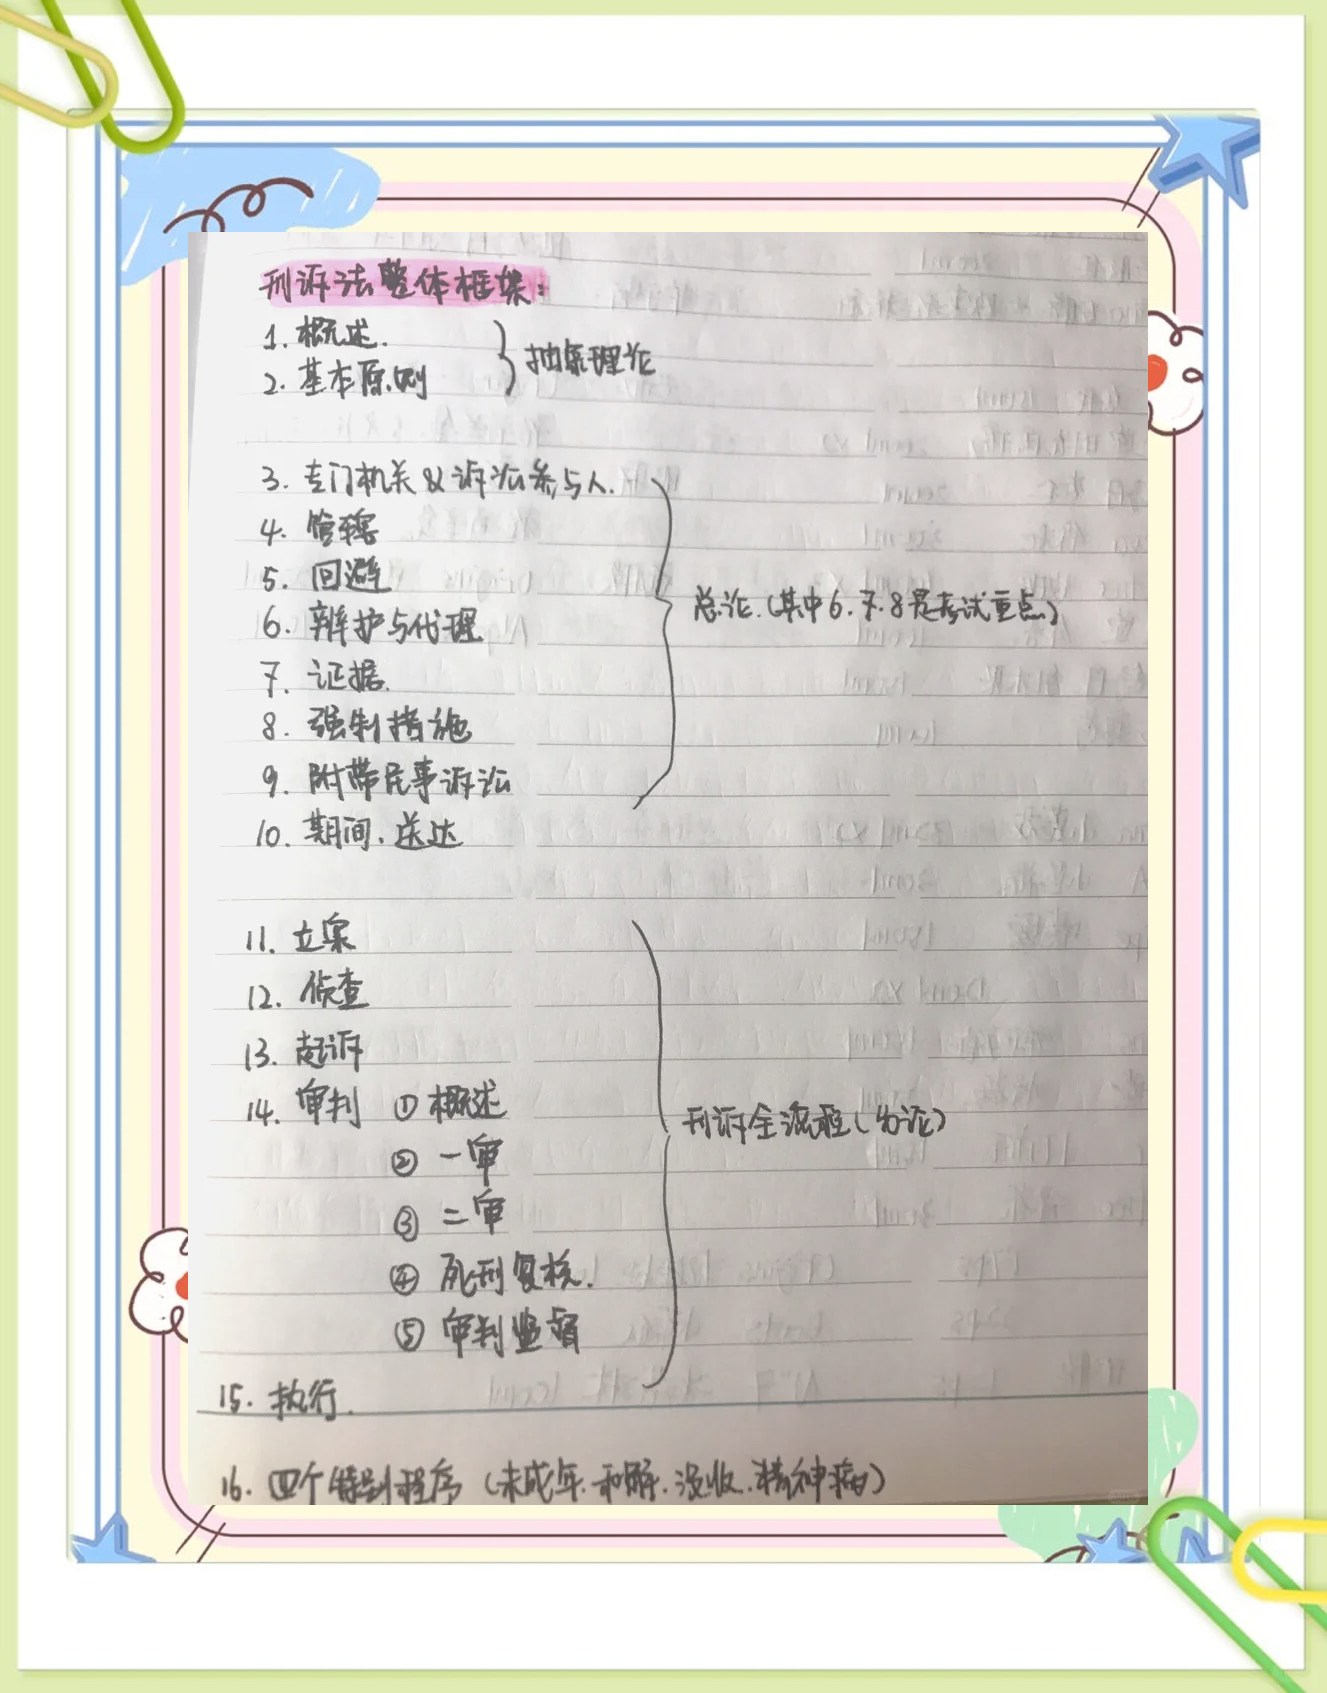 刑诉法整体框架:
1. 概述.
2. 基本原则
抽象理论
3. 专门机关 & 诉讼参与人.
4. 管辖
5. 回避
6. 辩护与代理
7. 证据.
8. 强制措施
9. 附带民事诉讼
10. 期间.送达
总论.(其中6.7.8是考试重点)
11. 立案
12. 侦查
13. 起诉
14. 审判 ① 概述
② 一审
③ 二审
④ 死刑复核.
⑤ 审判监督
15. 执行.
刑诉全流程(分论)
16. 四个特别程序(未成年.和解.没收.精神病)